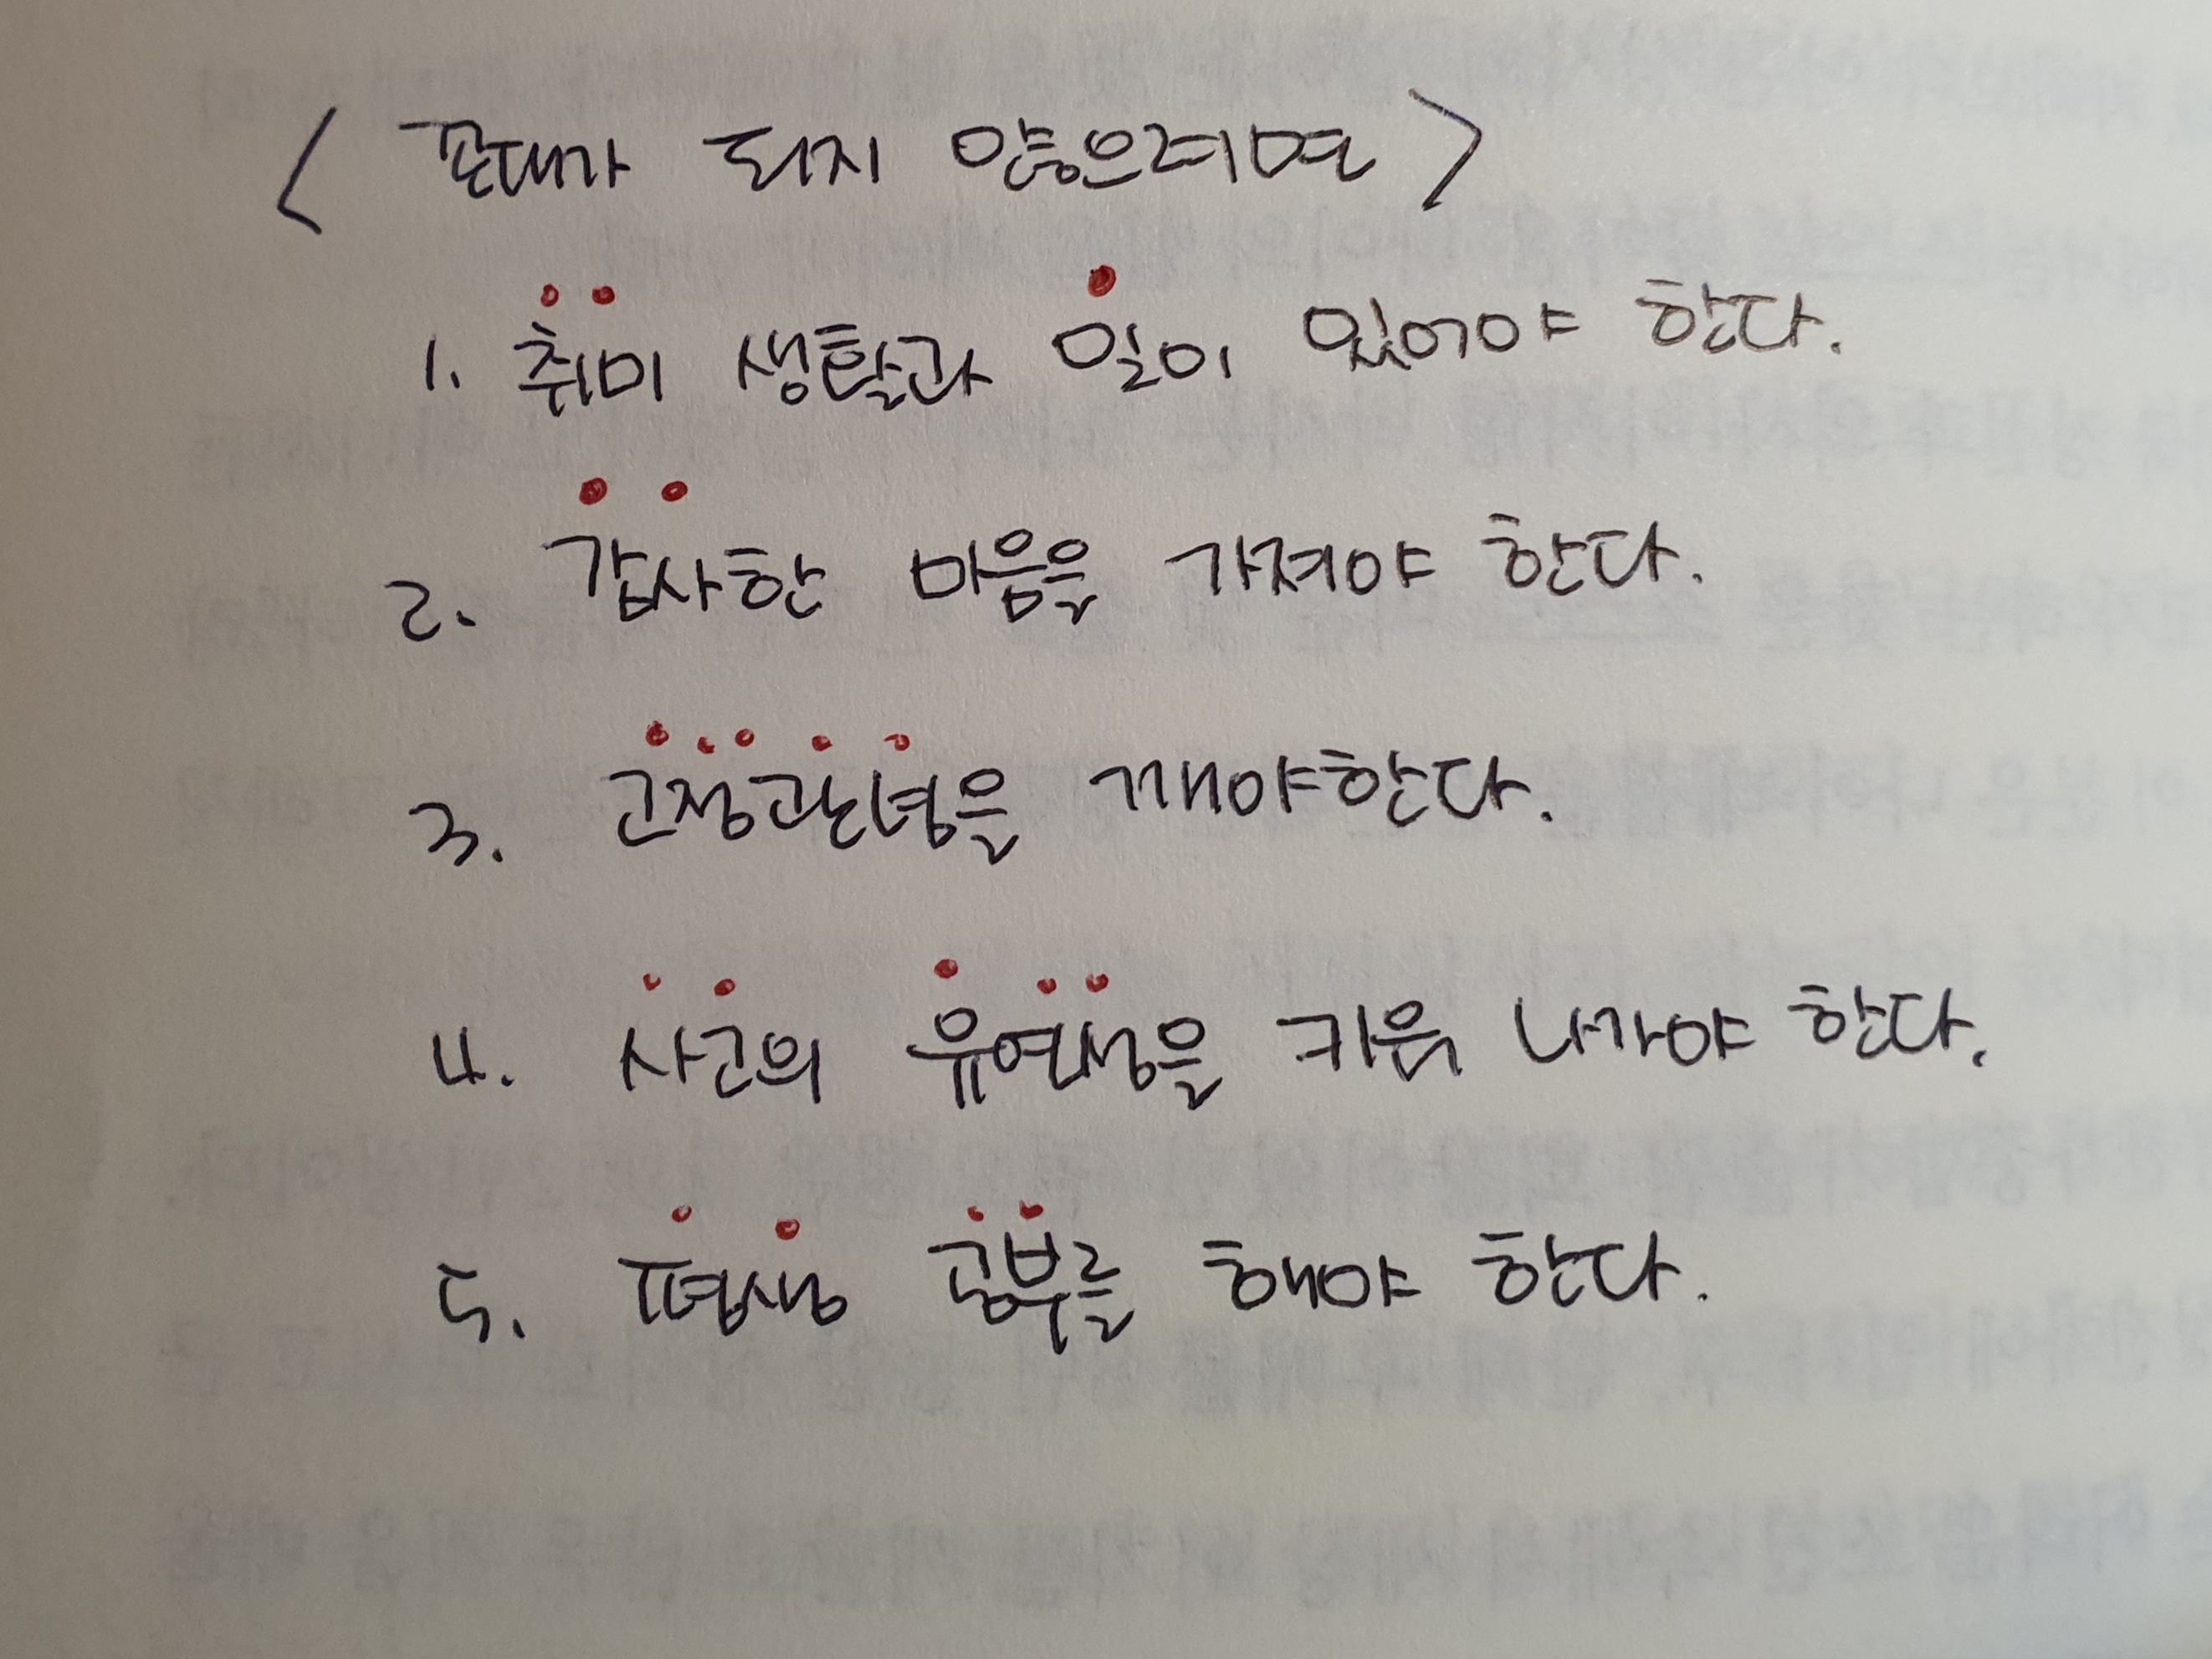 < 꼰대가 되지 않으려면 >
1. 취미 생활과 일이 있어야 한다.
2. 감사한 마음을 가져야 한다.
3. 고정관념을 깨야한다.
4. 사고의 유연성을 키워 나가야 한다.
5. 평생 공부를 해야 한다.